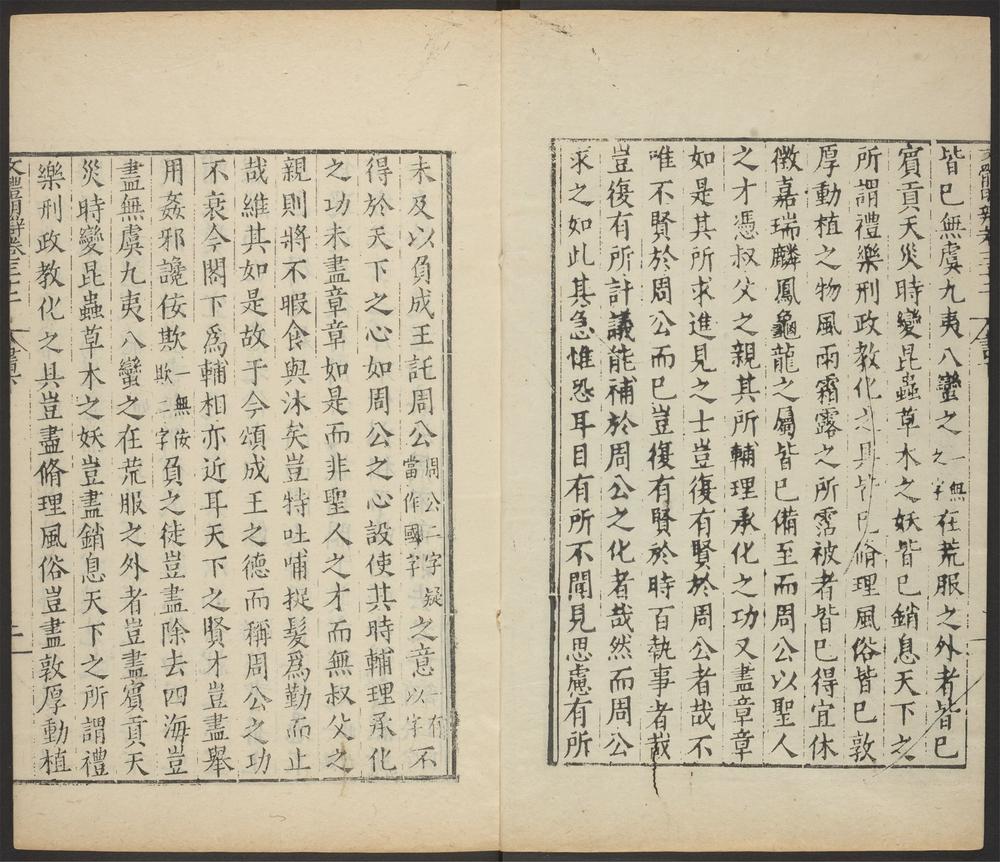 皆已無虞九夷八蠻之一無之字在荒服之外者皆已
賓貢天災時變昆蟲草木之妖皆已銷息天下之
所謂禮樂刑政教化之具皆已脩理風俗皆已敦
厚動植之物風雨霜露之所霑被者皆已得宜休
徵嘉瑞麟鳳龜龍之屬皆已備至而周公以聖人
之才憑叔父之親其所輔理承化之功又盡章章
如是其所求進見之士豈復有賢於周公者哉不
唯不賢於周公而已豈復有賢於時百執事者哉
豈復有所計議能補於周公之化者哉然而周公
求之如此其急惟恐耳目有所不聞見思慮有所
未及以負成王託周公周公二字疑當作國字之意一有以字不
得於天下之心如周公之心設使其時輔理承化
之功未盡章章如是而非聖人之才而無叔父之
親則將不暇食與沐矣豈特吐哺捉髮爲勤而止
哉維其如是故于今頌成王之德而稱周公之功
不衰今閣下爲輔相亦近耳天下之賢才豈盡舉
用姦邪讒佞欺一無佞欺二字負之徒豈盡除去四海豈
盡無虞九夷八蠻之在荒服之外者豈盡賓貢天
災時變昆蟲草木之妖豈盡銷息天下之所謂禮
樂刑政教化之具豈盡脩理風俗豈盡敦厚動植
文體明辯卷三十二